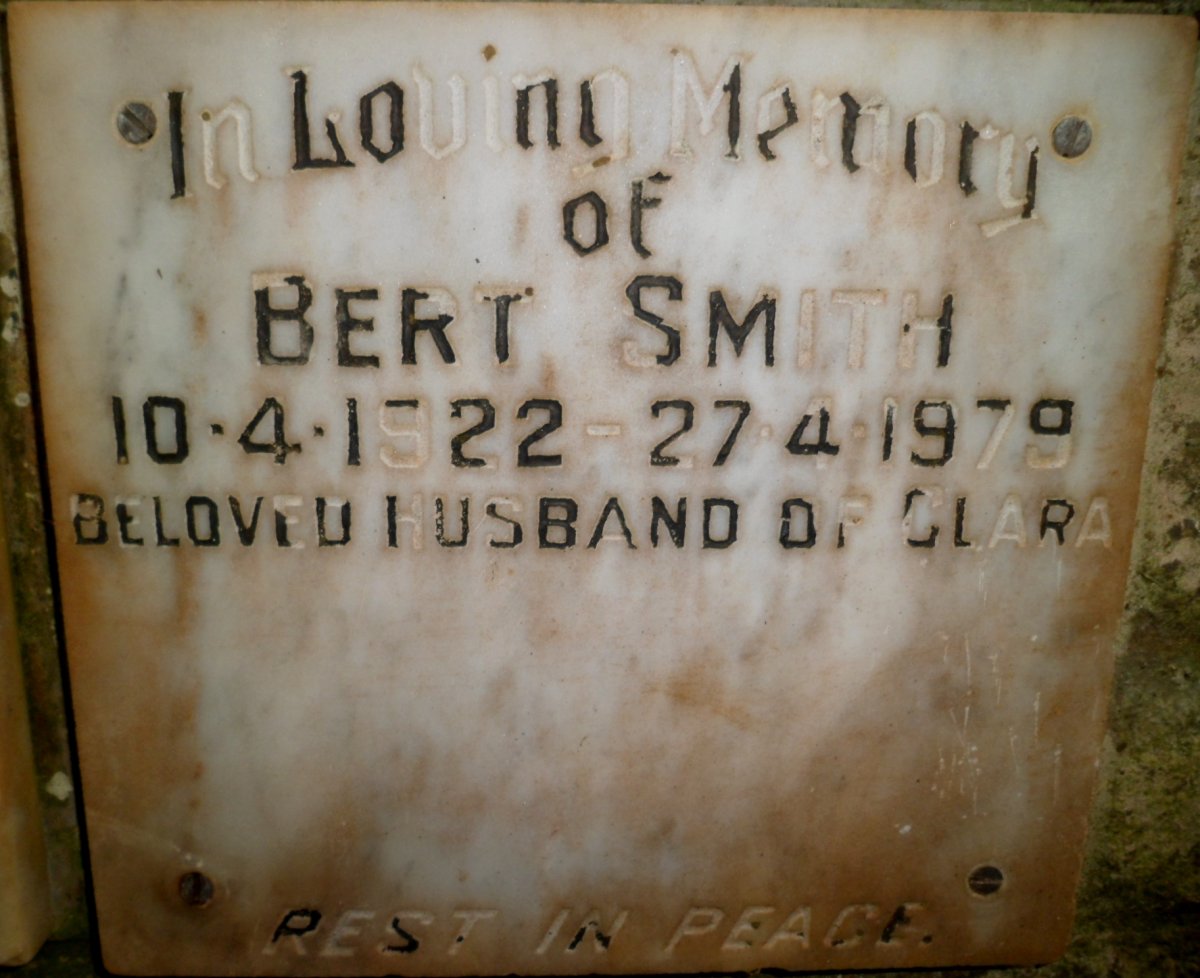 In Loving Memory
of
BERT SMITH
10·4·1922 - 27·4·1979
BELOVED HUSBAND OF CLARA
REST IN PEACE.